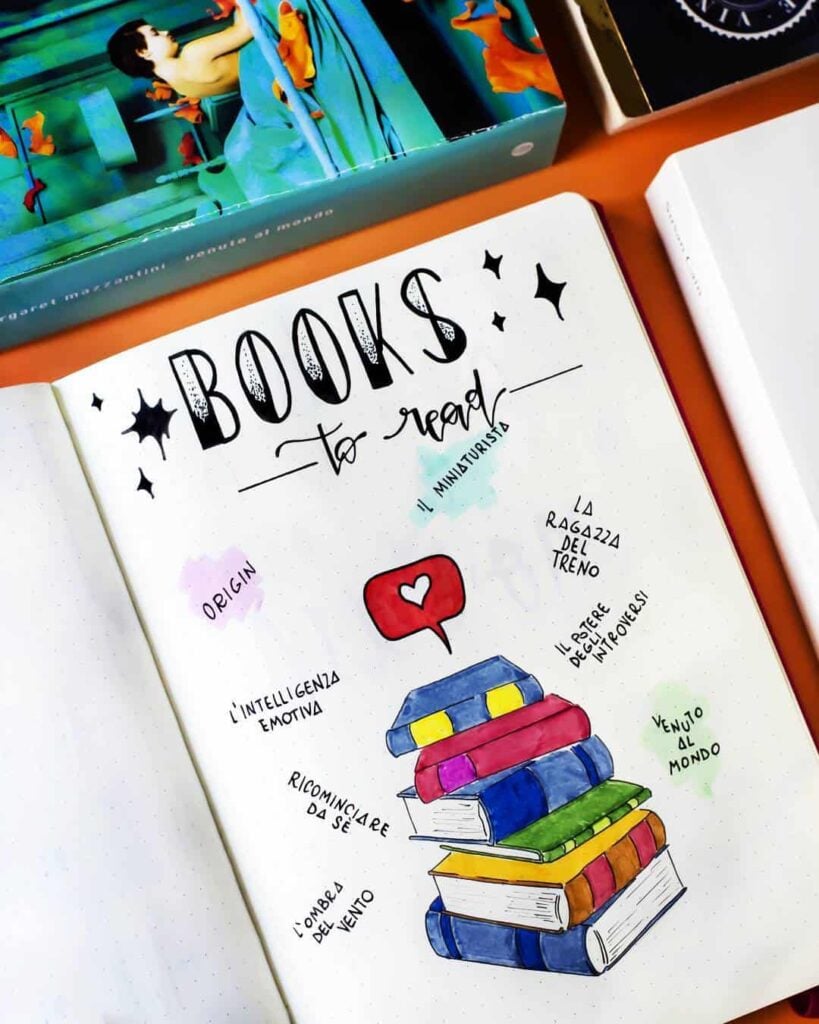 rgaret mazzantini venuto al mondo
Susan Cain
BOOKS
to read
IL MINIATURISTA
LA
RAGAZZA
DEL
TRENO
ORIGIN
IL POTERE
DEGLI
INTROVERSI
L'INTELLIGENZA
EMOTIVA
VENUTO
AL
MONDO
RICOMINCIARE
DA SÈ
L'OMBRA
DEL VENTO